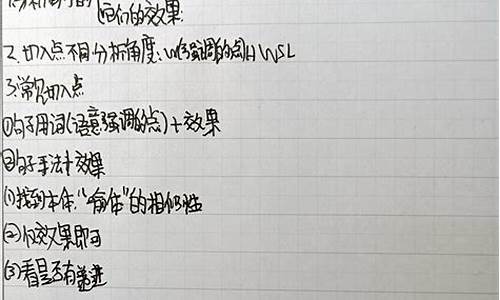 1.分析句子的
问们的效果.
2.切入点不同分析角度:W(强调的点)+WSL
3.常见切入点
①句子用词(语意强调的点)+效果
②句子手法+效果
(1)找到本体,"喻体"的相似性
(2)仅效果即可
(3)看是否有递进